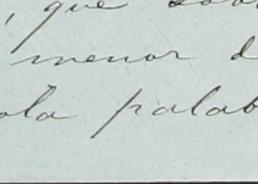 , que sob
menor d
ola palab